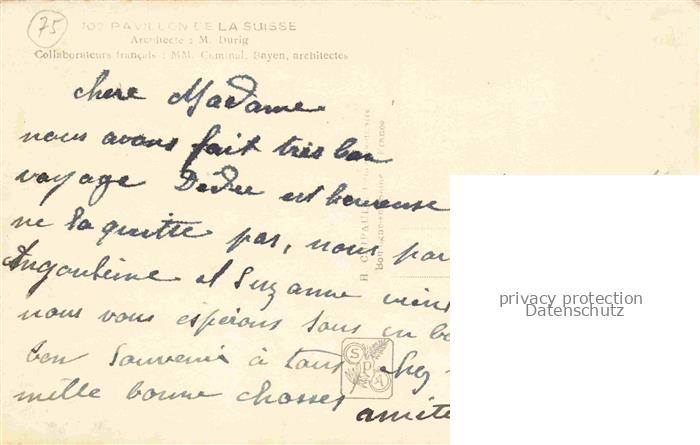 75
102 PAVILLON DE LA SUISSE
Architecte : M. Durig
Collaborateurs français : MM. Cuminal, Bayen, architectes
chere Madame
nous avons fait très bon
voyage Dédée est heureuse
ne la quitte pas, nous par
Angouleme et Suzanne viens
nous vous espérons tous en bo
bon souvenir à tous chez
mille bonne chosses amite
R. CHIPAULT
Boulogne-sur-Seine France
SPA
privacy protection
Datenschutz